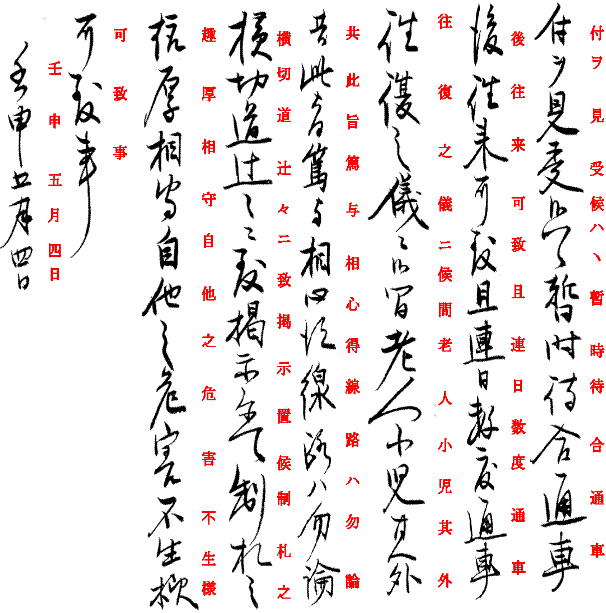 付ヲ見受候ハヽ暫時待合通車
付ヲ見受候ハヽ暫時待合通車
後往来可致且連日数度通車
後往来可致且連日数度通車
往復之儀ニ候間老人小児其外
往復之儀ニ候間老人小児其外
共此旨篤与相心得線路ハ勿論
共此旨篤与相心得線路ハ勿論
横切道辻々ニ致掲示置候制札之
横切道辻々ニ致掲示置候制札之
趣厚相守自他之危害不生様
趣厚相守自他之危害不生様
可致事
可致事
壬申五月四日
壬申五月四日